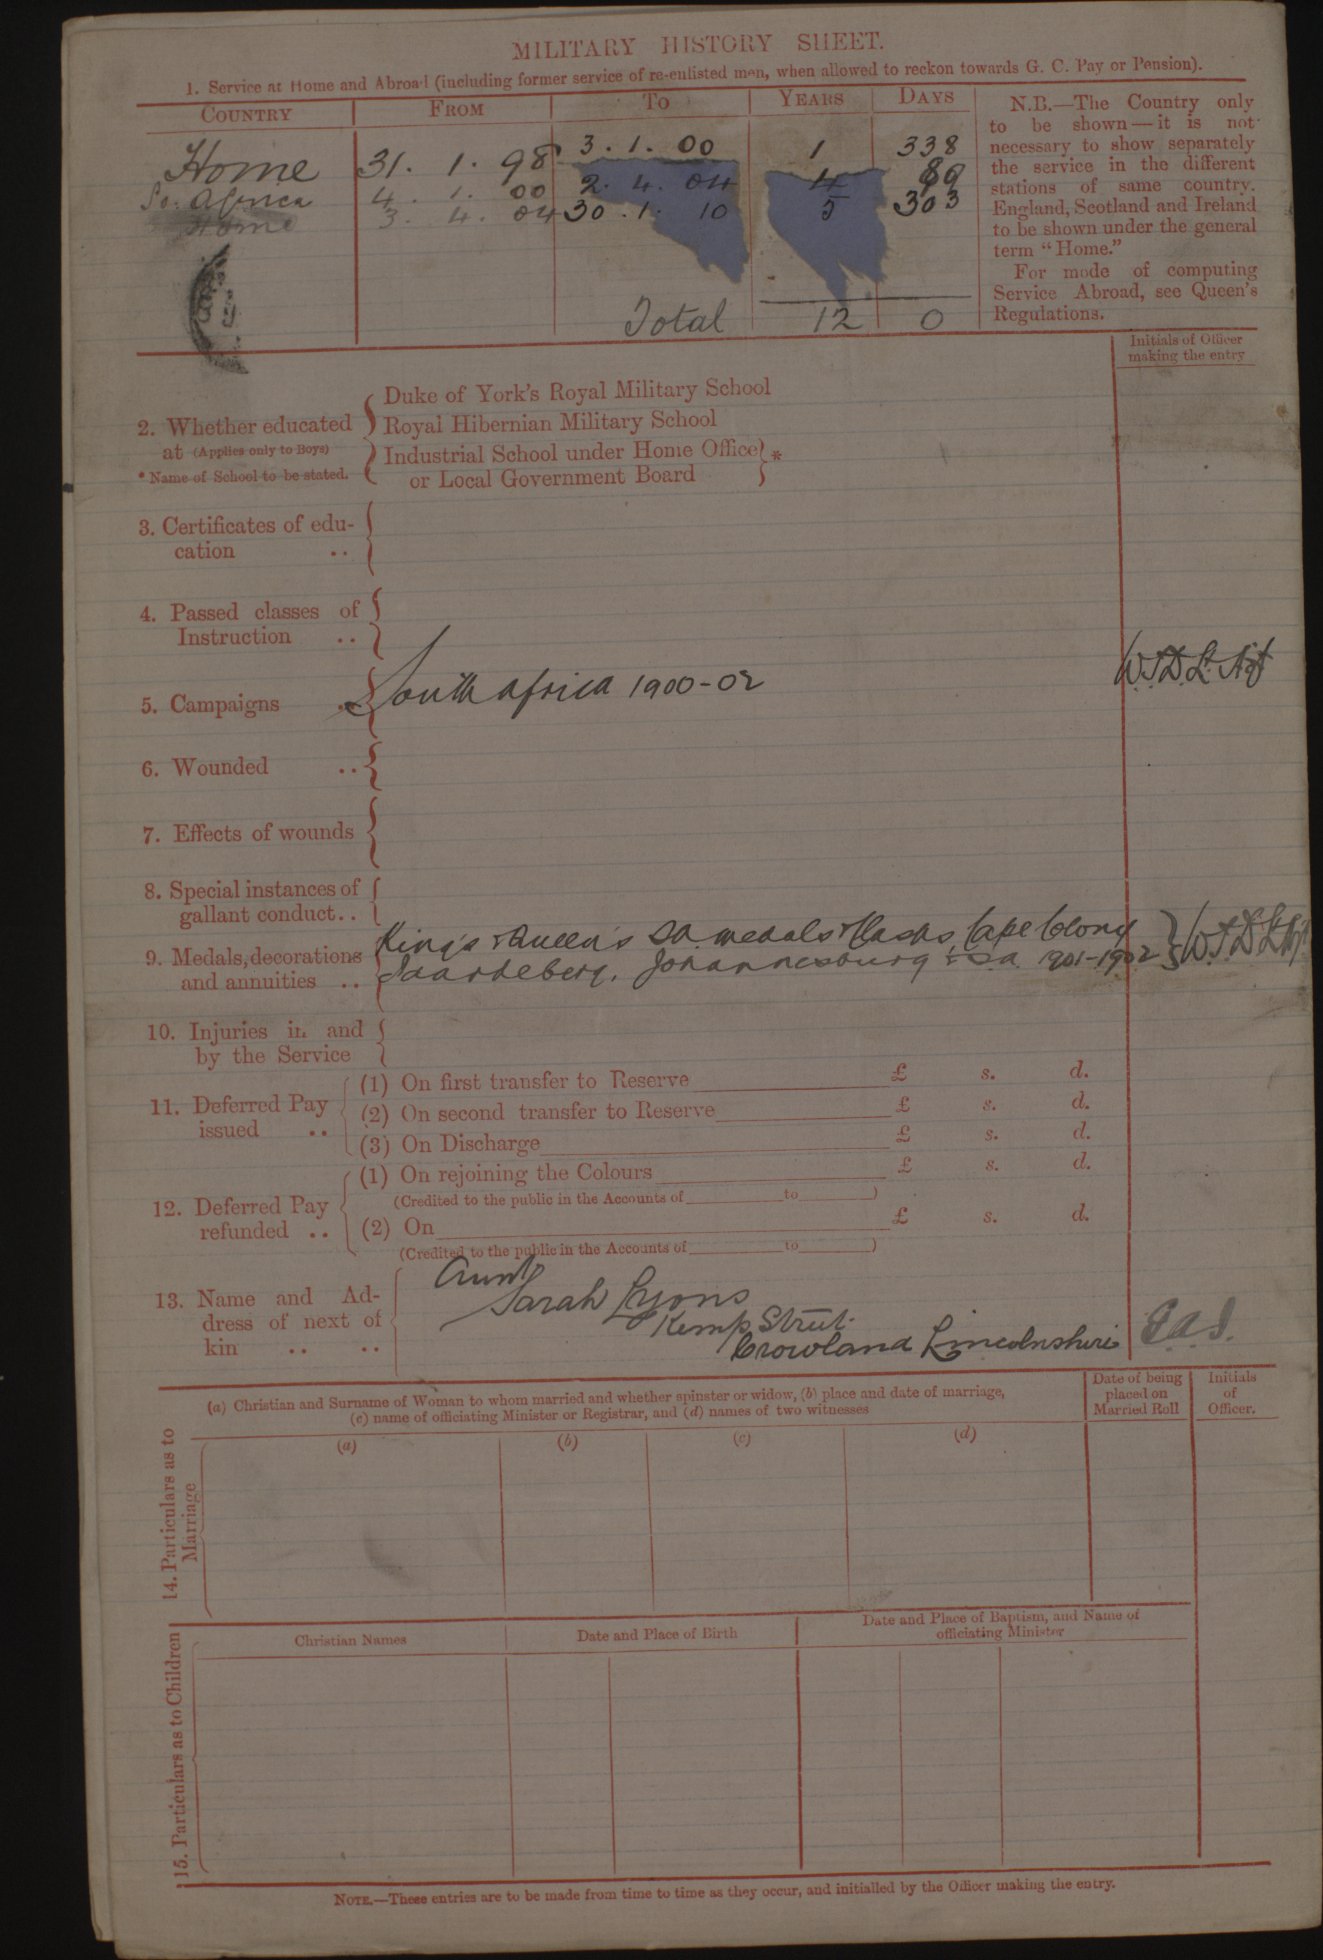 MILITARY HISTORY SHEET.
1. Service at Home and Abroad (including former service of re-enlisted men, when allowed to reckon towards G. C. Pay or Pension).
COUNTRY FROM TO YEARS DAYS
Home 31. 1. 98 3. 1. 00 1 338
So. Africa 4. 1. 00 2. 4. 04 4
Home 3. 4. 04 30. 1. 10 5 303
Total 12 0
N.B.—The Country only
to be shown—it is not
necessary to show separately
the service in the different
stations of same country.
England, Scotland and Ireland
to be shown under the general
term "Home."
For mode of computing
Service Abroad, see Queen's
Regulations.
Initials of Officer
making the entry
2. Whether educated
at (Applies only to Boys)
* Name of School to be stated.
Duke of York's Royal Military School
Royal Hibernian Military School
Industrial School under Home Office *
or Local Government Board
3. Certificates of edu-
cation ..
4. Passed classes of
Instruction ..
5. Campaigns .. South Africa 1900-02
6. Wounded ..
7. Effects of wounds
8. Special instances of
gallant conduct..
9. Medals, decorations
and annuities ..
King's & Queen's SA medals & Clasps, Cape Colony
Paardeberg, Johannesburg & S.A. 1901-1902
10. Injuries in and
by the Service
11. Deferred Pay
issued ..
(1) On first transfer to Reserve £ s. d.
(2) On second transfer to Reserve £ s. d.
(3) On Discharge £ s. d.
12. Deferred Pay
refunded ..
(1) On rejoining the Colours £ s. d.
(Credited to the public in the Accounts of to )
(2) On £ s. d.
(Credited to the public in the Accounts of to )
13. Name and Ad-
dress of next of
kin .. ..
Aunt
Sarah Lyons
Kemp Street
Crowland Lincolnshire
14. Particulars as to
Marriage
(a) Christian and Surname of Woman to whom married and whether spinster or widow, (b) place and date of marriage,
(c) name of officiating Minister or Registrar, and (d) names of two witnesses
Date of being
placed on
Married Roll
Initials
of
Officer.
(a) (b) (c) (d)
15. Particulars as to Children
Christian Names
Date and Place of Birth
Date and Place of Baptism, and Name of
officiating Minister
NOTE.—These entries are to be made from time to time as they occur, and initialled by the Officer making the entry.